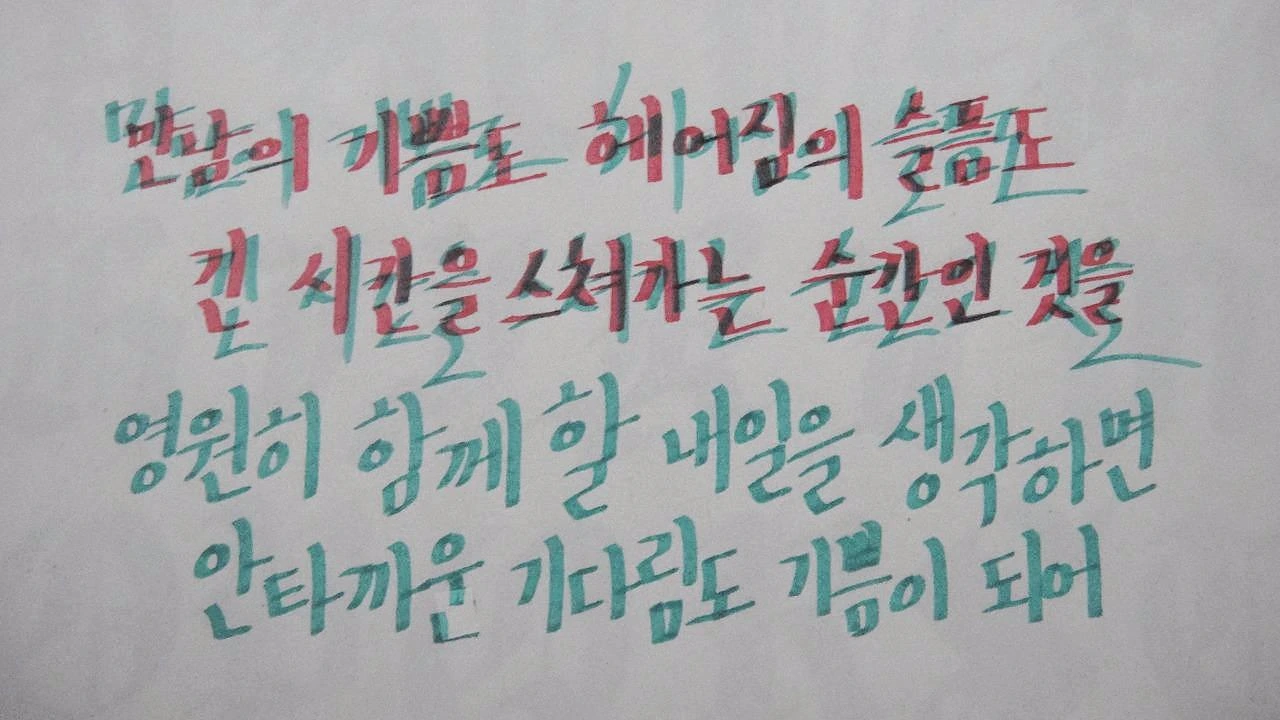 만남의 기쁨도 헤어짐의 슬픔도
긴 시간을 스쳐가는 순간인 것을
영원히 함께 할 내일을 생각하면
안타까운 기다림도 기쁨이 되어